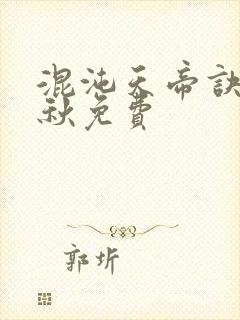 混沌天帝訣
秋免費
郭圻